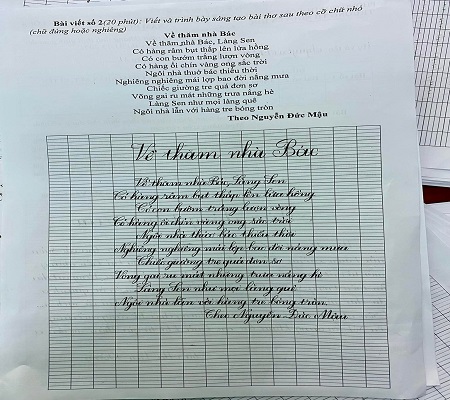 Bài viết số 2 (20 phút): Viết và trình bày sáng tạo bài thơ sau theo cỡ chữ nhỏ
(chữ đứng hoặc nghiêng)
Về thăm nhà Bác
Về thăm nhà Bác, Làng Sen
Có hàng râm bụt thắp lên lửa hồng
Có con bướm trắng lượn vòng
Có hàng ổi chín vàng ong sắc trời
Ngôi nhà thuở bác thiếu thời
Nghiêng nghiêng mái lợp bao đời nắng mưa
Chiếc giường tre quá đơn sơ
Võng gai ru mát những trưa nắng hè
Làng Sen như mọi làng quê
Ngôi nhà lẫn với hàng tre bóng tròn
Theo Nguyễn Đức Mậu
Về thăm nhà Bác
Về thăm nhà Bác, Làng Sen
Có hàng râm bụt thắp lên lửa hồng
Có con bướm trắng lượn vòng
Có hàng ổi chín vàng ong sắc trời
Ngôi nhà thuở bác thiếu thời
Nghiêng nghiêng mái lợp bao đời nắng mưa
Chiếc giường tre quá đơn sơ
Võng gai ru mát những trưa nắng hè
Làng Sen như mọi làng quê
Ngôi nhà lẫn với hàng tre bóng tròn.
Theo Nguyễn Đức Mậu